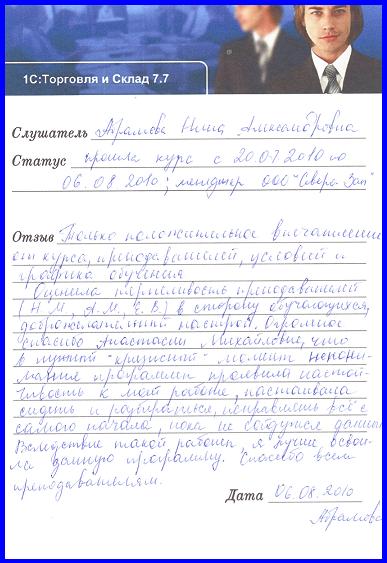 1С:Торговля и Склад 7.7
Слушатель Абрамова Нина Александровна
Статус прошла курс с 20.07.2010 по
06.08 2010; менеджер ООО "Северо-Зап"
Отзыв Только положительное впечатление
от курса, преподавателей, условий и
графика обучения
Оценила терпеливость преподавателей
(Н.М., А.М., Е.В.) в сторону обучающихся,
доброжелательный настрой. Огромное
спасибо Анастасии Михайловне, что
в нужный "кризисный" момент непони-
мания программы проявила настой-
чивость к моей работе, настаивала
сидеть и разбираться, исправлять всё с
самого начала, пока не сойдутся данные
Вследствие такой работы, я лучше осво-
ила данную программу. Спасибо всем
преподавателям.
Дата 06.08.2010
Абрамова